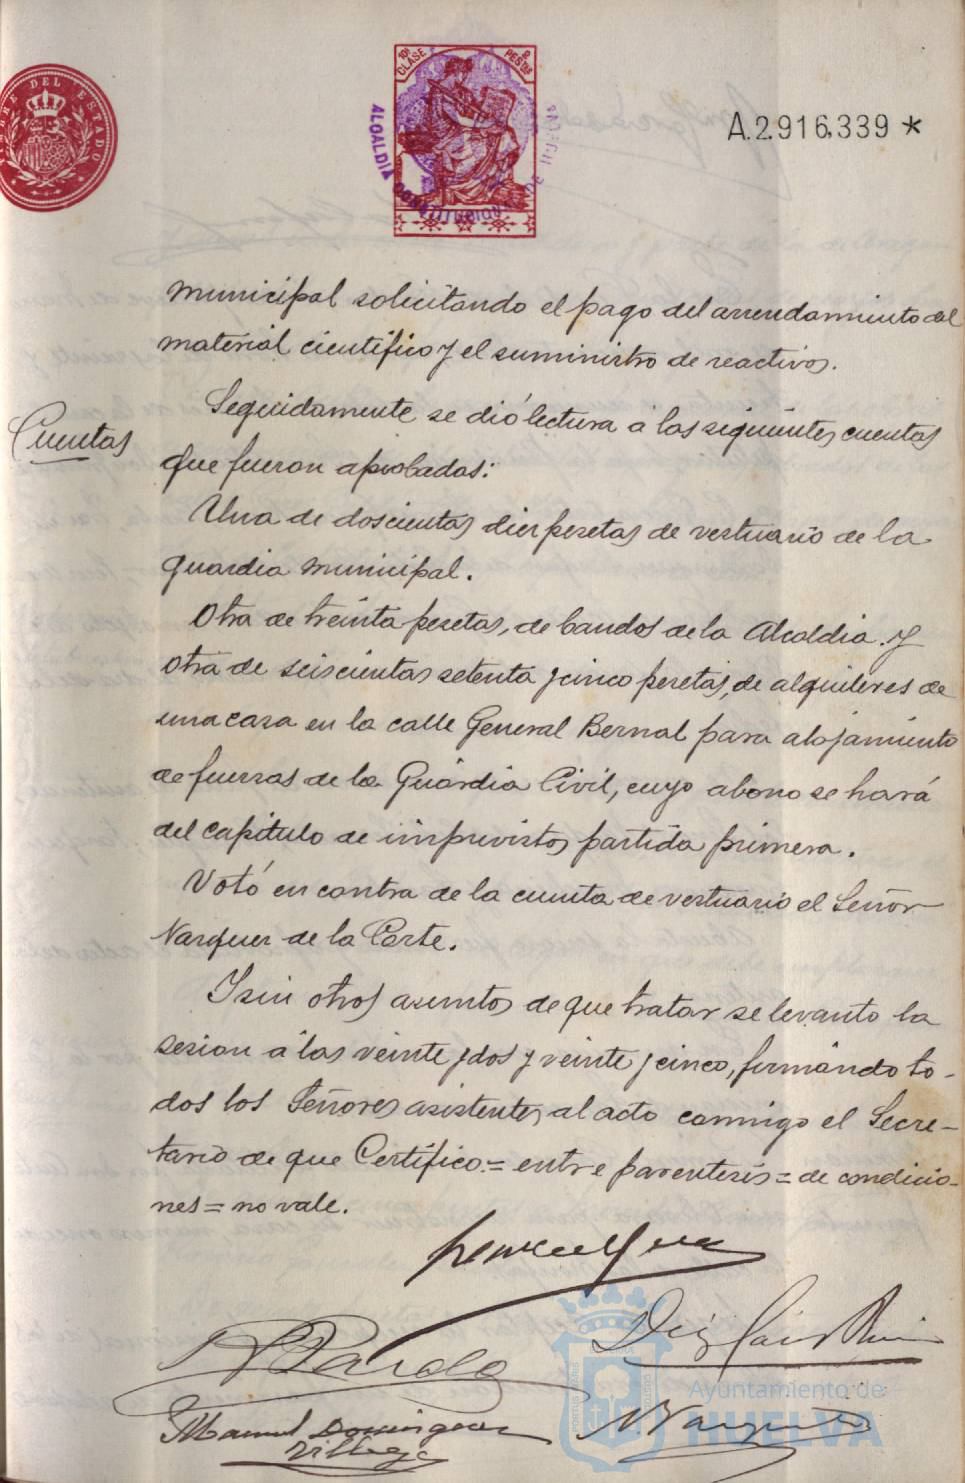 TIMBRE DEL ESTADO
10ª CLASE
2 PESETAS
ALCALDIA CONSTITUCIONAL DE
A.2.916.339 *
municipal solicitando el pago del arrendamiento del
material científico y el suministro de reactivos.
Cuentas
Seguidamente se dió lectura á las siguientes cuentas
que fueron aprobadas:
Una de doscientas diez pesetas de vestuario de la
guardia municipal.
Otra de treinta pesetas, de bandos de la Alcaldia y
otra de seiscientas setenta y cinco pesetas, de alquileres de
una casa en la calle General Bernal para alojamiento
de fuerzas de la Guardia Civil, cuyo abono se hará
del capitulo de imprevistos partida primera.
Votó en contra de la cuenta de vestuario el Señor
Vazquez de la Corte.
Y sin otros asuntos de que tratar se levanto la
sesion á las veinte y dos y veinte y cinco, firmando to-
dos los Señores asistentes al acto conmigo el Secre-
tario de que Certifico.= entre parentesis = de condicio-
nes = no vale.
Pardo
Manuel Dominguez
Villega
Vazquez
Ayuntamiento de
HUELVA